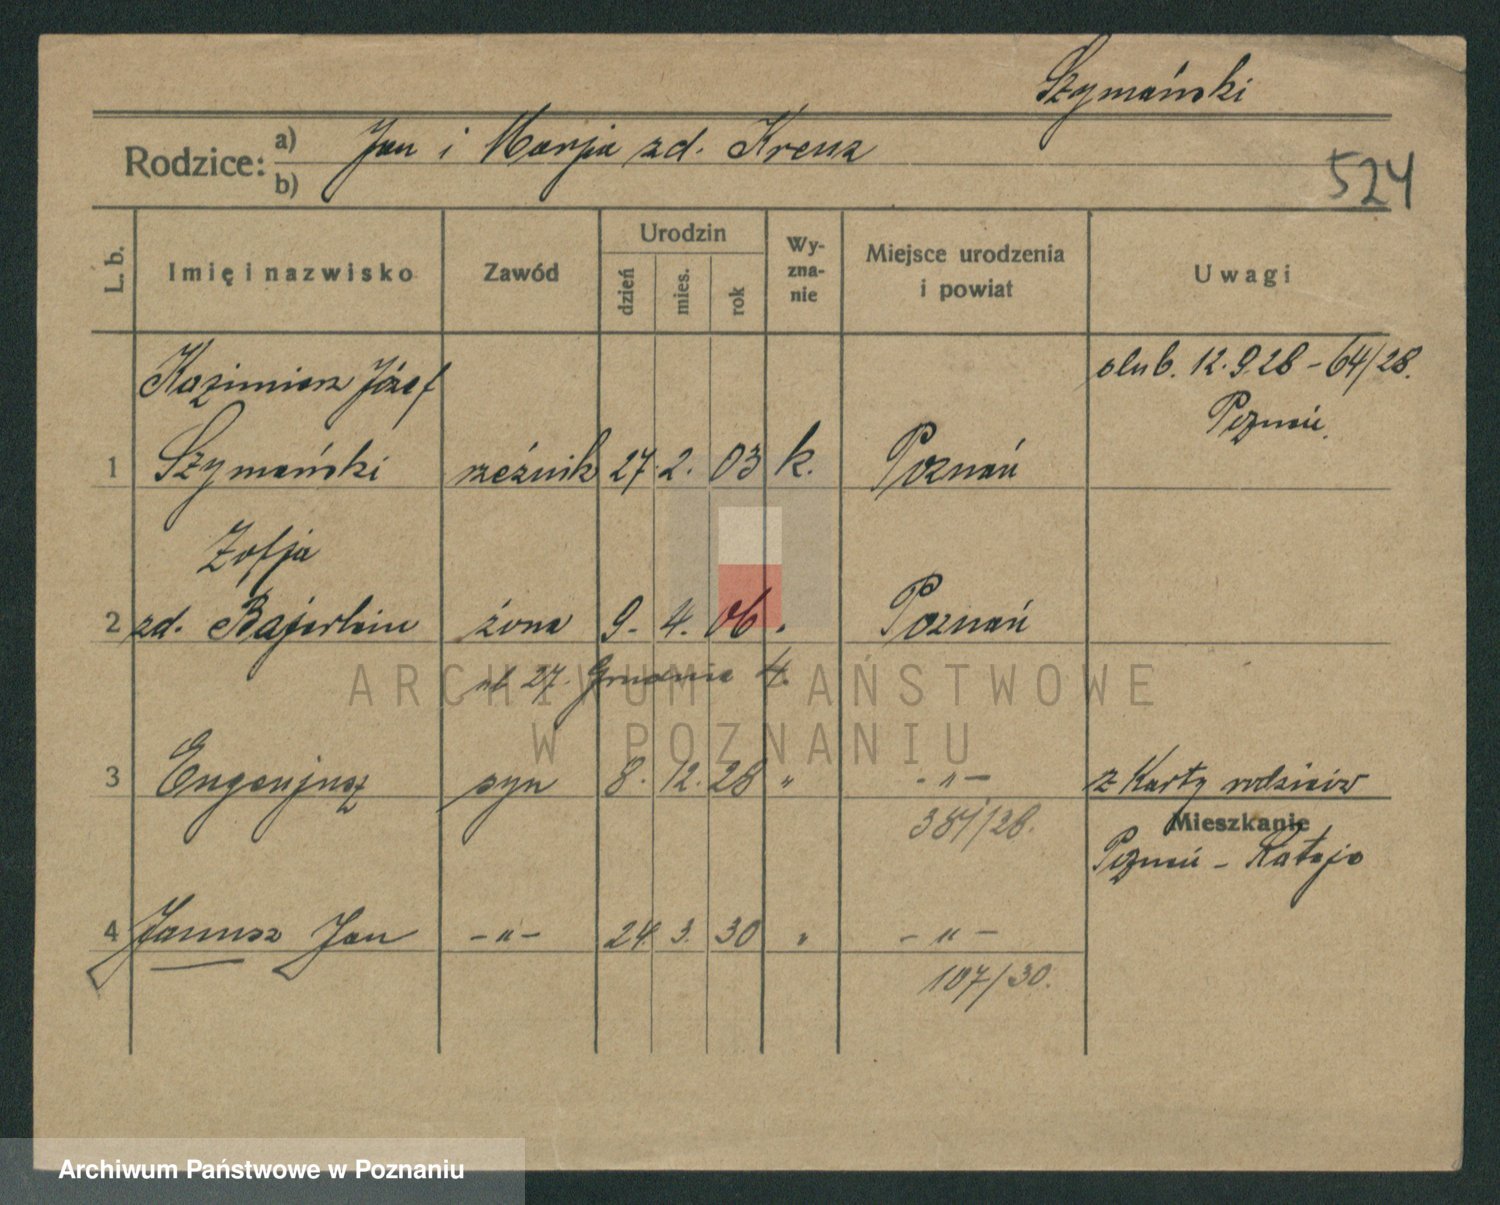 Szymański
Rodzice: a) Jan i Marja zd. Krenz
b)
524
L. b. Imię i nazwisko Zawód Urodzin dzień mies. rok Wy-zna-nie Miejsce urodzenia i powiat Uwagi
Kazimierz Józef ślub. 12.9.28 – 64/28.
Poznań.
1 Szymański rzeźnik 27. 2. 03 k. Poznań
Zofja
2 zd. Bajerlein żona 9. 4. 06 " Poznań
ur. 27. Grudnia 4.
ARCHIWUM PAŃSTWOWE
W POZNANIU
3 Eugenjusz syn 8. 12. 28 " - " - z Karty rodziców
381/28. Mieszkanie
Poznań – Rataje
4 Janusz Jan - " - 24. 3. 30 " - " -
107/30.
Archiwum Państwowe w Poznaniu